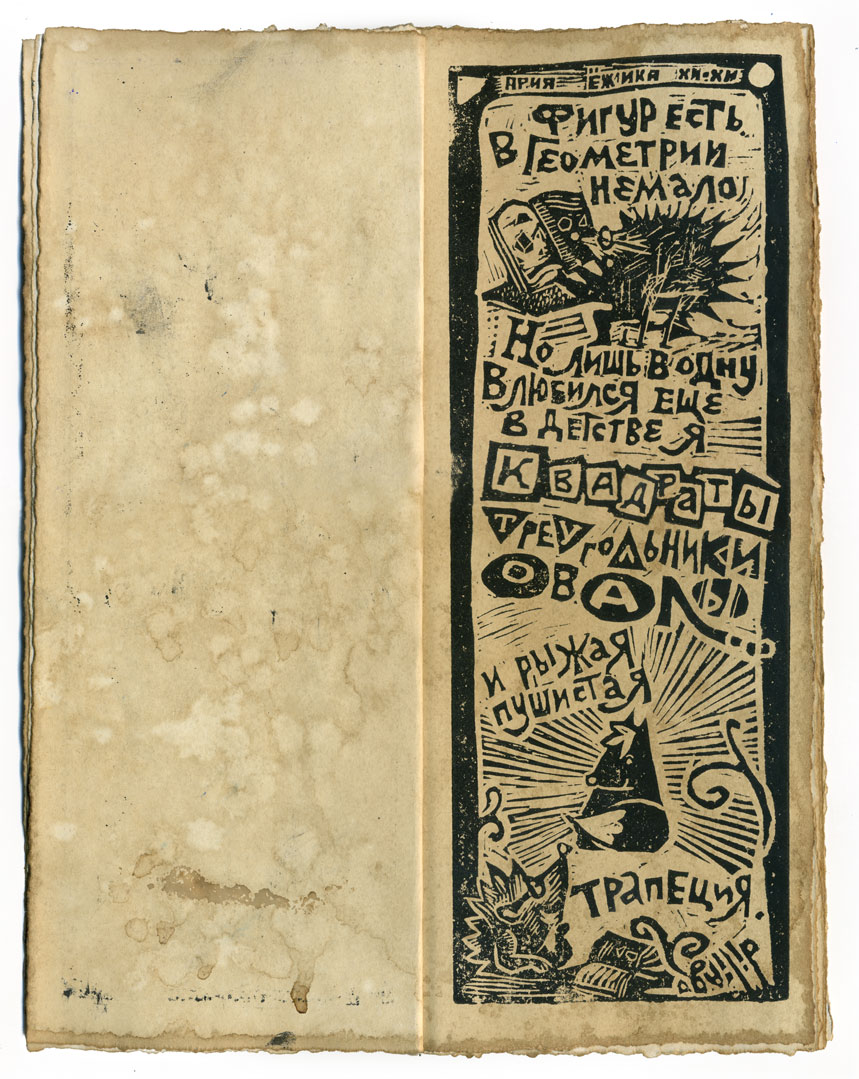 АРИЯ ЁЖИКА ХИ-ХИ
ФИГУР ЕСТЬ
В ГЕОМЕТРИИ
НЕМАЛО
НО ЛИШЬ В ОДНУ
ВЛЮБИЛСЯ ЕЩЕ
В ДЕТСТВЕ Я
КВАДРАТЫ
ТРЕУГОЛЬНИКИ
ОВАЛЫ...
И РЫЖАЯ
ПУШИСТАЯ
ТРАПЕЦИЯ.